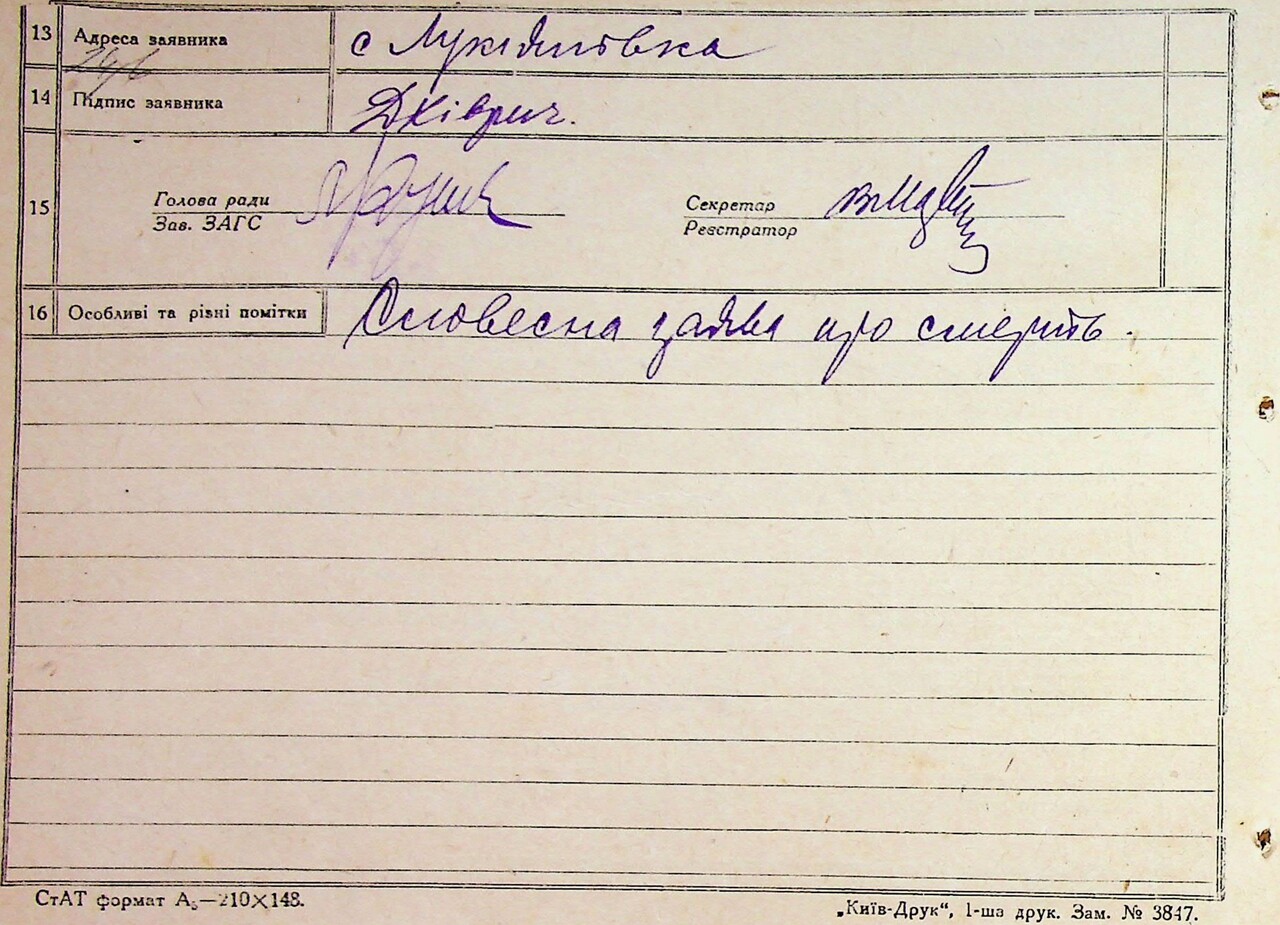 13 Адреса заявника с Лукіяновка
14 Підпис заявника
15 Голова ради Секретар
Зав. ЗАГС Реєстратор
16 Особливі та різні помітки Словесна заява про смерть.
СтАТ формат А₅—210×148.
„Київ-Друк“, 1-ша друк. Зам. № 3847.